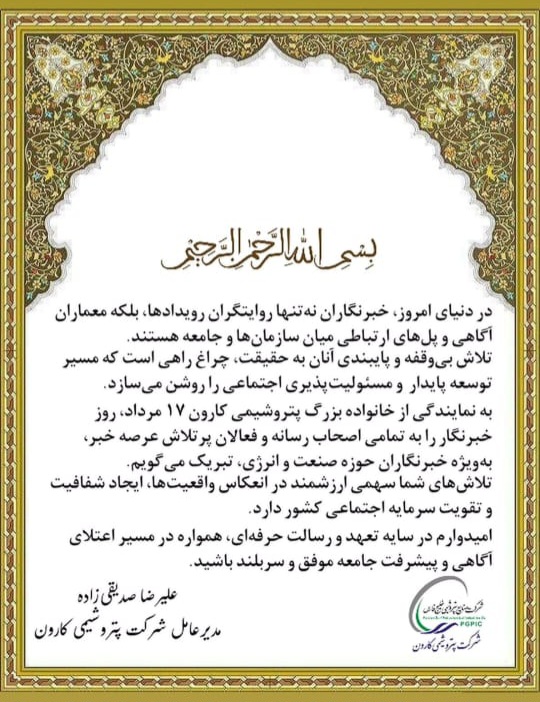 بسم الله الرحمن الرحیم
در دنیای امروز، خبرنگاران نه‌تنها روایتگران رویدادها، بلکه معماران
آگاهی و پل‌های ارتباطی میان سازمان‌ها و جامعه هستند.
تلاش بی‌وقفه و پایبندی آنان به حقیقت، چراغ راهی است که مسیر
توسعه پایدار و مسئولیت‌پذیری اجتماعی را روشن می‌سازد.
به نمایندگی از خانواده بزرگ پتروشیمی کارون ۱۷ مرداد، روز
خبرنگار را به تمامی اصحاب رسانه و فعالان پرتلاش عرصه خبر،
به‌ویژه خبرنگاران حوزه صنعت و انرژی، تبریک می‌گویم.
تلاش‌های شما سهمی ارزشمند در انعکاس واقعیت‌ها، ایجاد شفافیت
و تقویت سرمایه اجتماعی کشور دارد.
امیدوارم در سایه تعهد و رسالت حرفه‌ای، همواره در مسیر اعتلای
آگاهی و پیشرفت جامعه موفق و سربلند باشید.
علیرضا صدیقی‌زاده
مدیرعامل شرکت پتروشیمی کارون
شرکت صنایع پتروشیمی خلیج فارس
PGPIC
شرکت پتروشیمی کارون